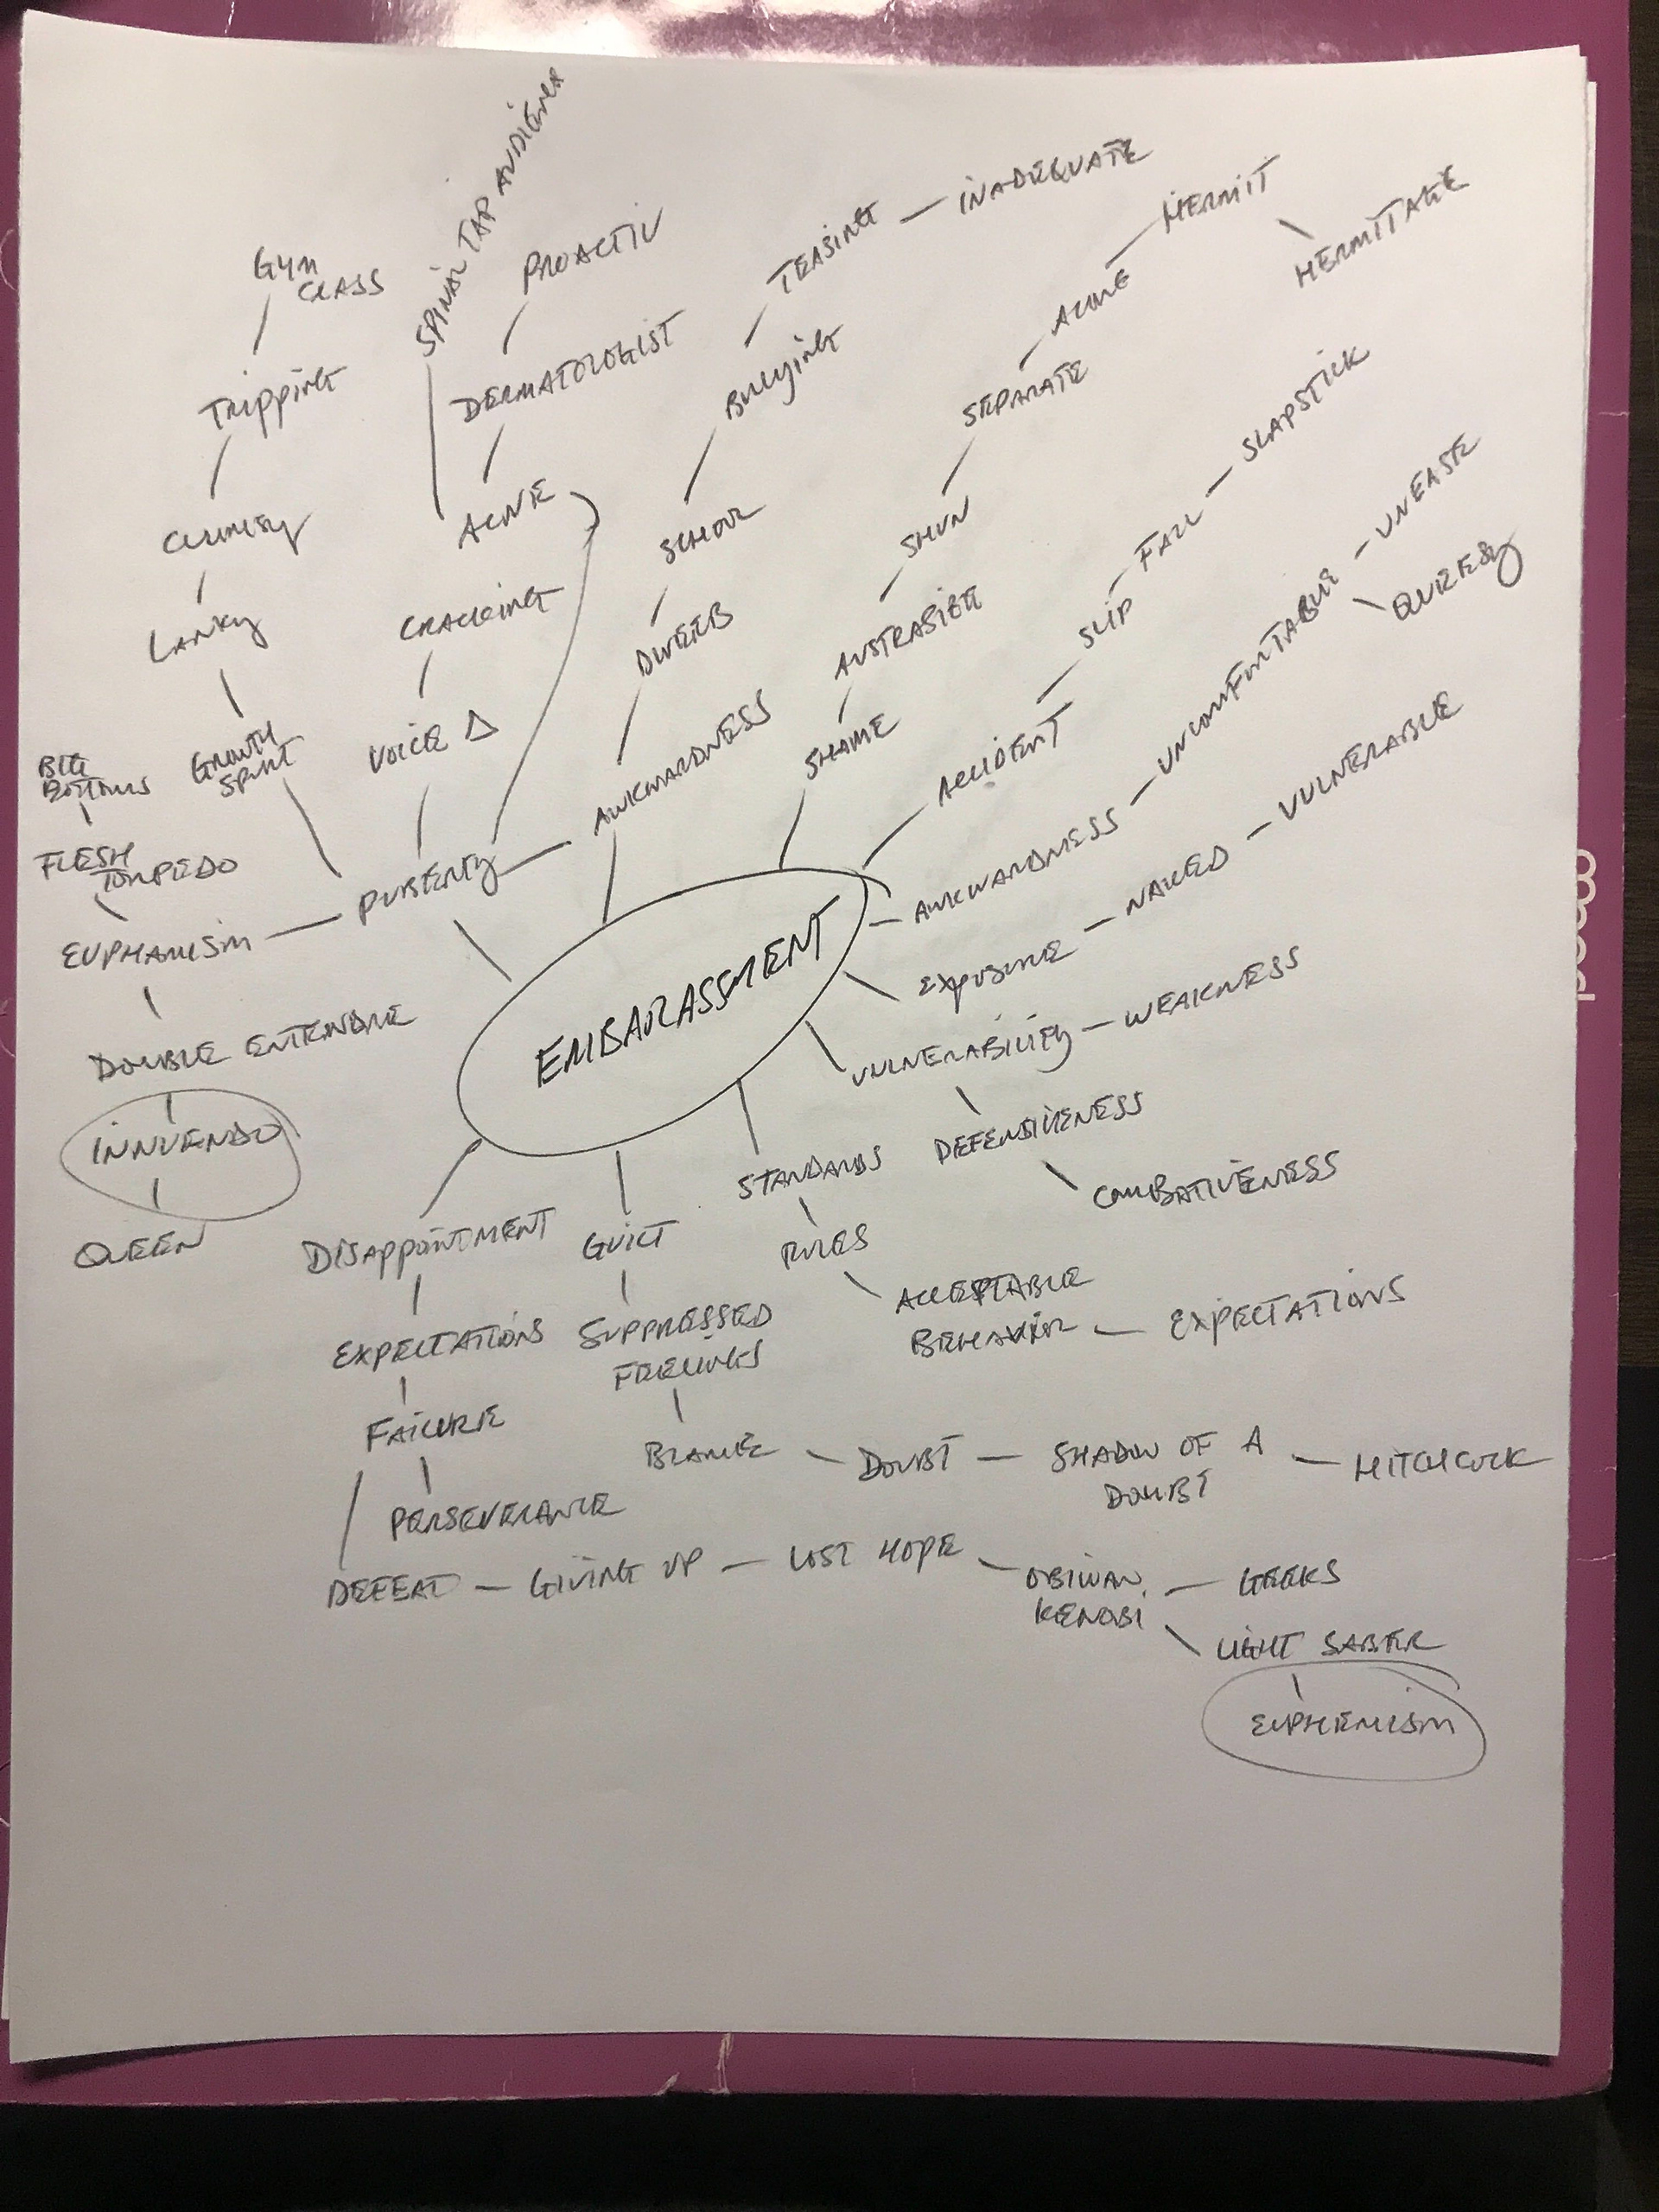 GYM
CLASS
TRIPPING
CLUMSY
LANKY
GROWTH
SPURT
SPINAL TAP
PROACTIV
DERMATOLOGIST
ACNE
CRACKING
VOICE Δ
PUBERTY
BIG
BOTTOMS
FLESH
TORPEDO
EUPHAMISM
DOUBLE ENTENDRE
INNUENDO
QUEEN
INADEQUATE
TEASING
BULLYING
SCHOOL
DWEEB
AWKWARDNESS
HERMITAGE
HERMIT
ALONE
SEPARATE
SHUN
SHAME
SLAPSTICK
FALL
SLIP
ACCIDENT
AWKWARDNESS
UNCOMFORTABLE
UNEASE
EMBARASSMENT
EXPOSURE
NAKED
VULNERABLE
VULNERABILITY
WEAKNESS
DEFENSIVENESS
COMBATIVENESS
STANDARDS
RULES
ACCEPTABLE
BEHAVIOR
EXPECTATIONS
GUILT
SUPPRESSED
FEELINGS
BLAME
DOUBT
SHADOW OF A
DOUBT
HITCHCOCK
DISAPPOINTMENT
EXPECTATIONS
FAILURE
PERSEVERANCE
DEFEAT
GIVING UP
LOST HOPE
OBIWAN
KENOBI
GEEKS
LIGHT SABER
EUPHEMISM